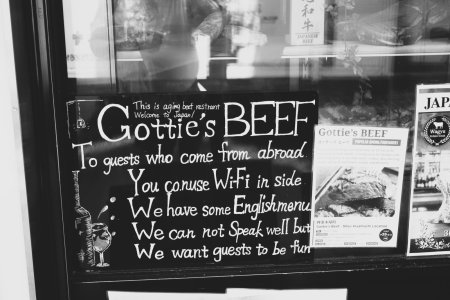 和牛
JAPANESE
BEEF
This is aging beef restrant
Welcome to Japan!
Gottie's BEEF
To guests who come from abroad
You conuse Wi-Fi in side
We have some Englishmenu
We can not Speak well but
We want guests to be fun
Gottie's BEEF
JAPA
Wagyu